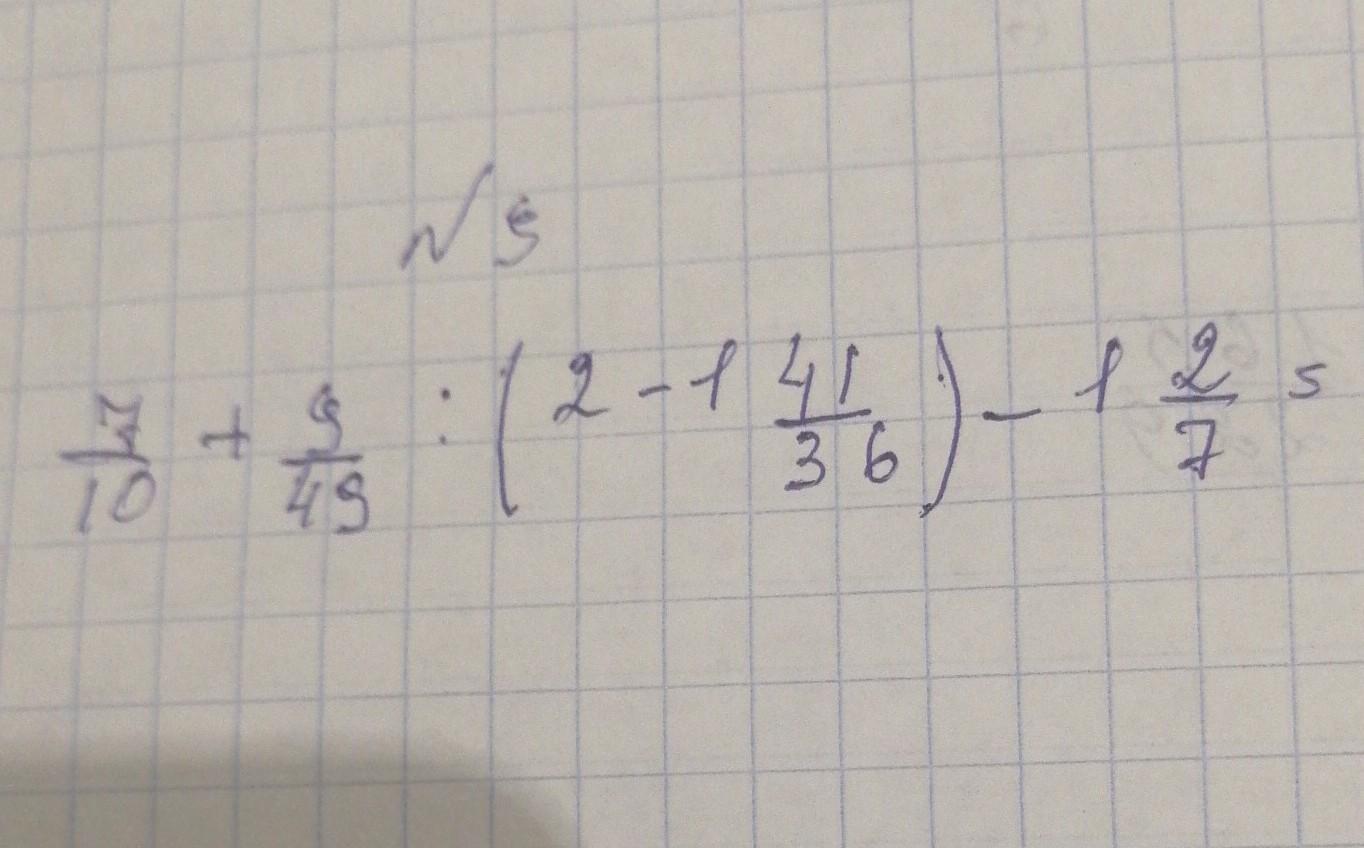 № 9
7/10 + 9/49 : (2 - 1 41/36) - 1 2/7 =